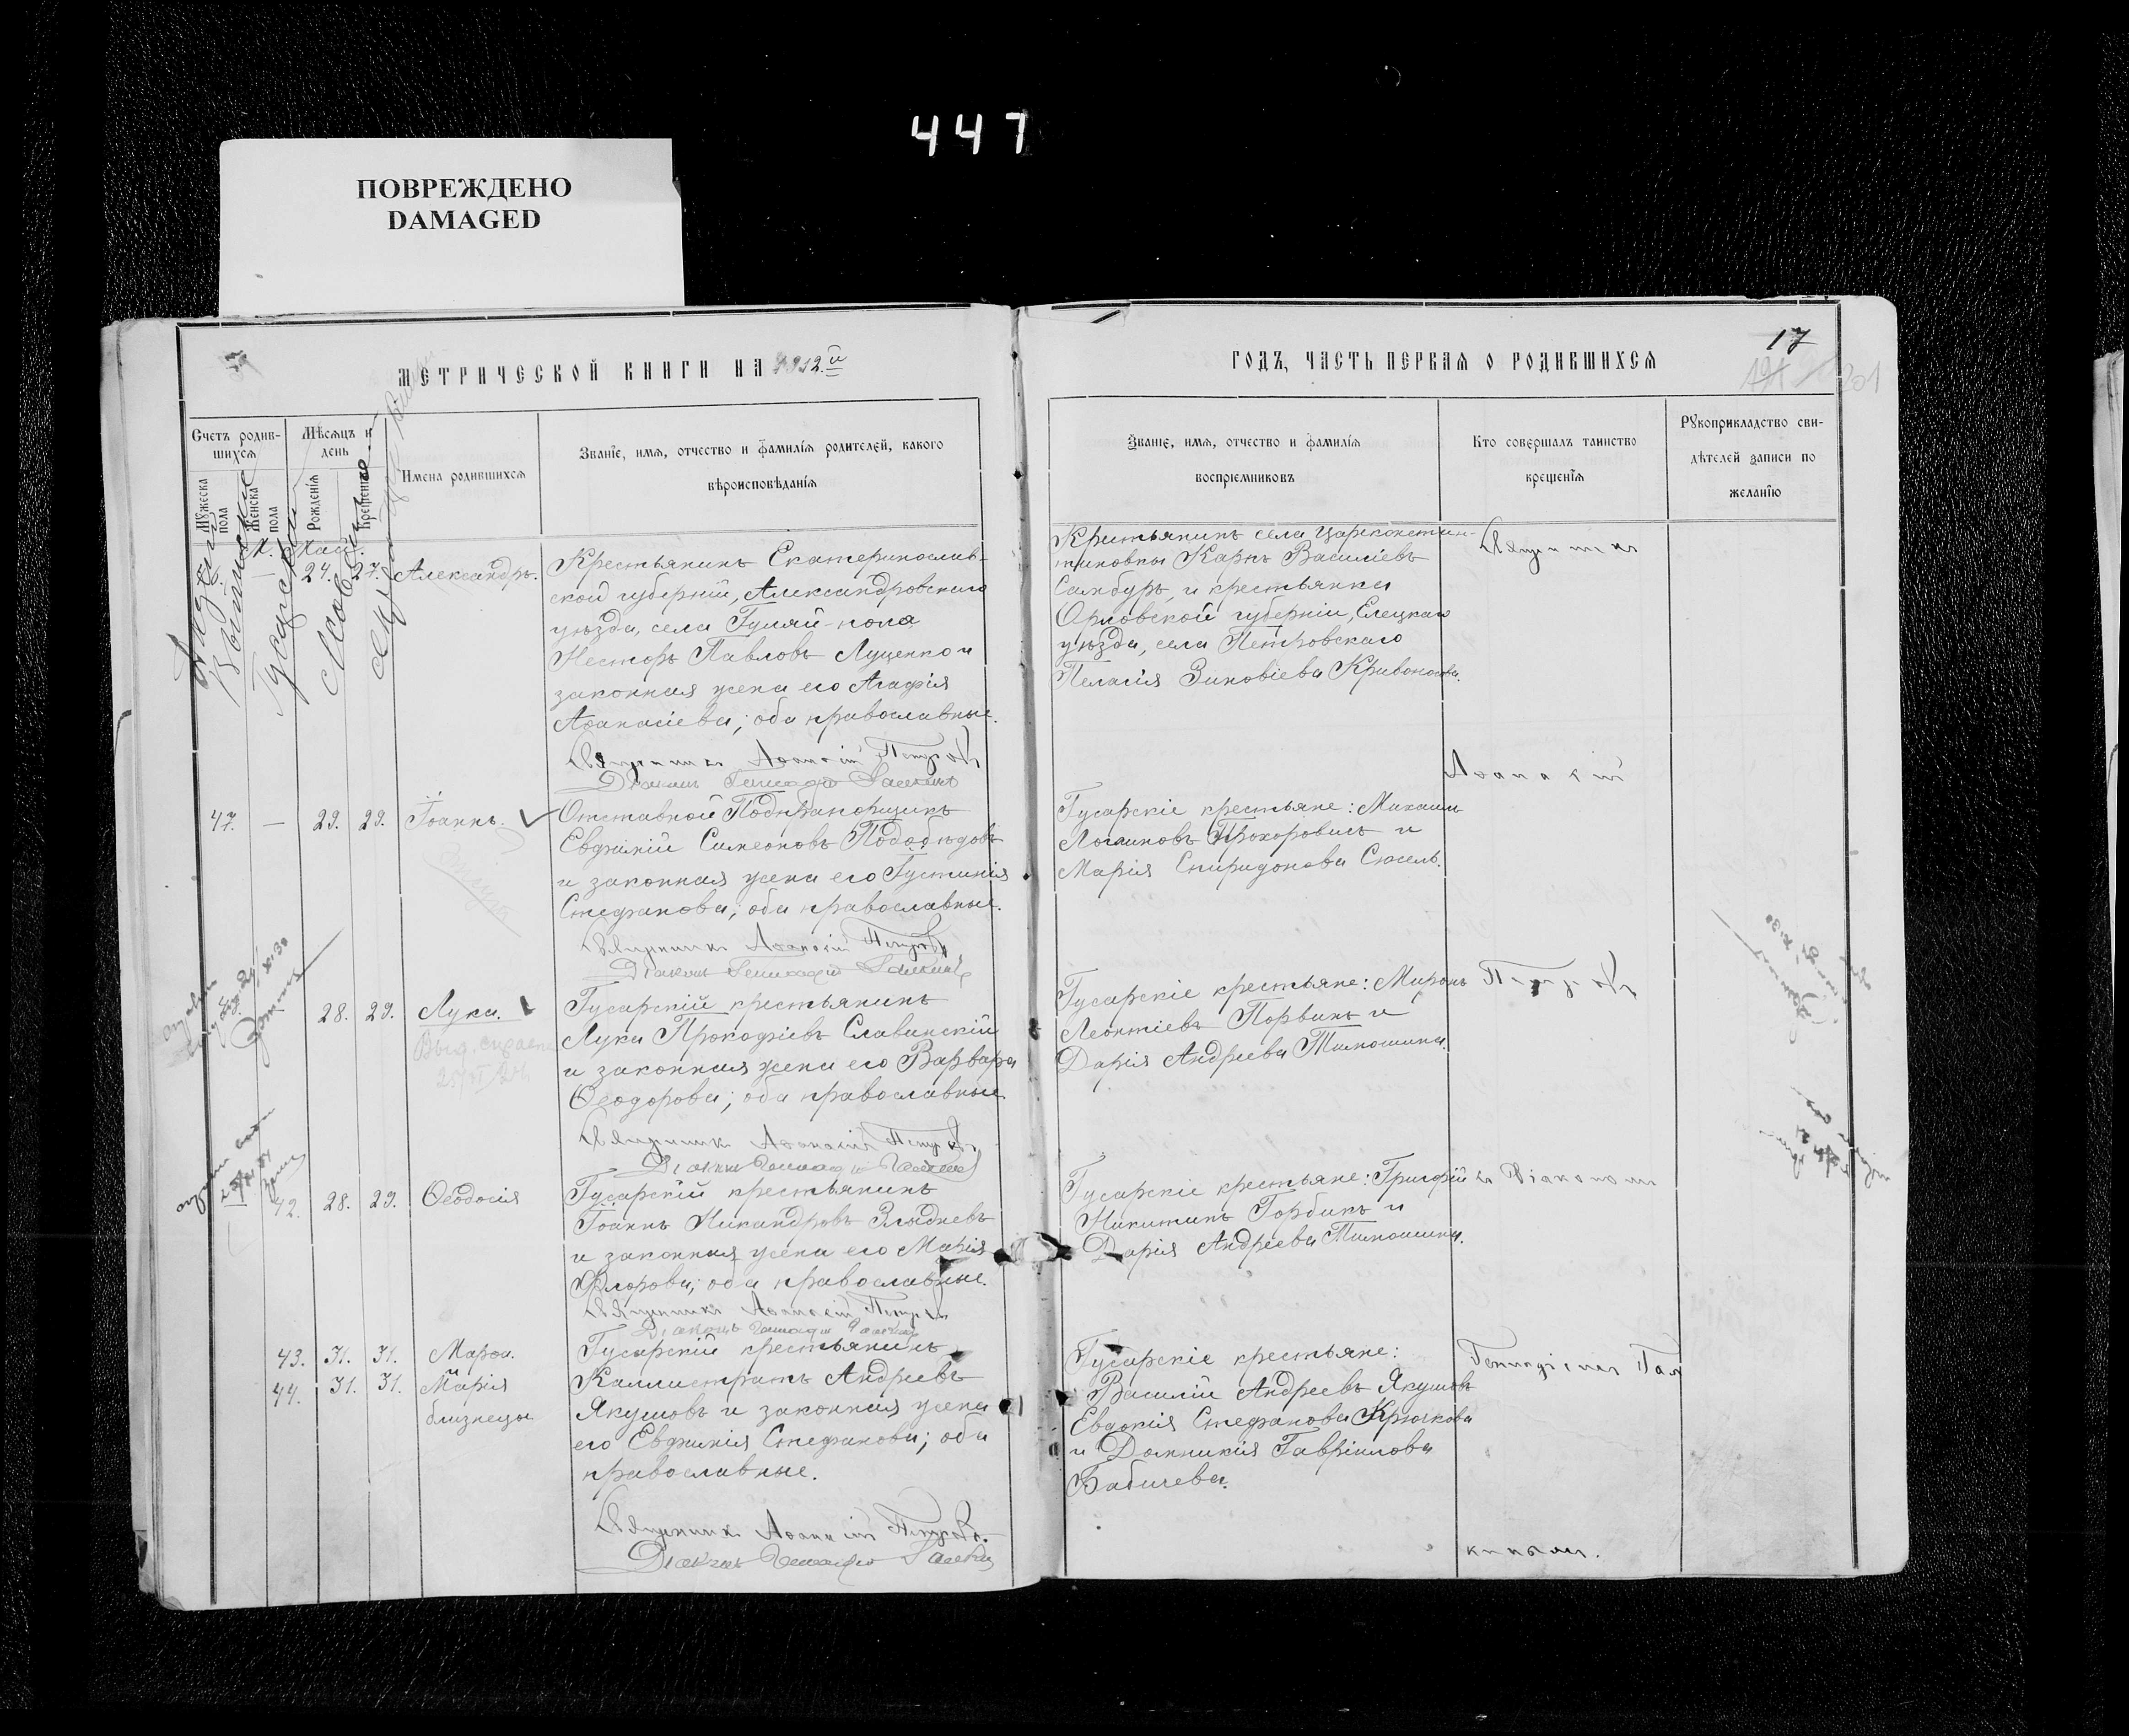 447
ПОВРЕЖДЕНО
DAMAGED
17
МЕТРИЧЕСКОЙ КНИГИ НА 1912й
ГОДЪ, ЧАСТЬ ПЕРВАЯ О РОДИВШИХСЯ
Счетъ родив-
шихся
Мужеска
пола
Женска
пола
Мѣсяцъ и
день
Рожденія
Крещенія
Имена родившихся
Званіе, имя, отчество и фамилія родителей, какого
вѣроисповѣданія
Званіе, имя, отчество и фамилія
воспріемниковъ
Кто совершалъ таинство
крещенія
Рукоприкладство сви-
дѣтелей записи по
желанію
24. 27. Александръ.
Крестьянинъ Екатеринослав-
ской губерніи, Александровскаго
уѣзда, села Гуляй-поля
Несторъ Павловъ Луценко и
законная жена его Агафія
Аѳанасіева; оба православные.
Священникъ Аѳанасій Петровъ
Діаконъ Геннадій
Крестьянинъ села Цареконстан-
тиновки Карпъ Василіевъ
Самбуръ, и крестьянка
Орловской губерніи, Елецкаго
уѣзда, села Петровскаго
Пелагія Зиновіева Кривоносова.
Священникъ
Аѳанасій
47. — 29. 29. Іоаннъ.
Отставной Подпрапорщикъ
Евфимій Симеоновъ Подобѣдовъ
и законная жена его Іустинія
Стефанова; оба православные.
Священникъ Аѳанасій Петровъ
Діаконъ Геннадій
Гусарскіе крестьяне: Михаилъ
Логиновъ Прохоровичъ и
Марія Спиридонова Сюсель.
28. 29. Лука.
Гусарскій крестьянинъ
Лука Прокофіевъ Славинскій
и законная жена его Варвара
Ѳеодорова; оба православные
Священникъ Аѳанасій Петровъ
Діаконъ Геннадій
Гусарскіе крестьяне: Миронъ
Леонтіевъ Порвинъ и
Дарія Андреева Тимошина.
Петровъ
42. 28. 29. Ѳеодосія
Гусарскій крестьянинъ
Іоаннъ Никандровъ Злыдневъ
и законная жена его Марія
Флорова; оба православные.
Священникъ Аѳанасій Петровъ
Діаконъ Геннадій
Гусарскіе крестьяне: Григорій
Никитинъ Горбинъ и
Дарія Андреева Тимошина.
съ Діакономъ
43. 31. 31. Марѳа.
и
44. 31. 31. Марія
близнецы
Гусарскій крестьянинъ
Каллистратъ Андреевъ
Якушовъ и законная жена
его Евфимія Стефанова; оба
православные.
Священникъ Аѳанасій Петровъ.
Діаконъ Геннадій
Гусарскіе крестьяне:
Василій Андреевъ Якушовъ
Евдокія Стефанова Крючкова
и Домникія Гавріилова
Бабичева.
Геннадіемъ Гал
кинымъ.